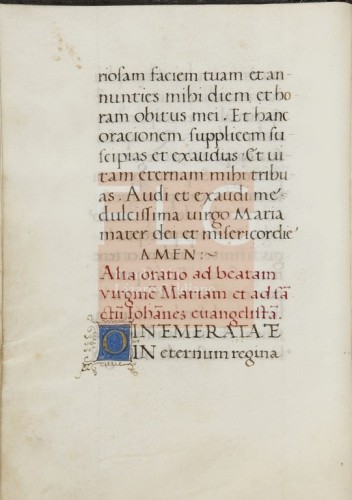 riosam faciem tuam et an-
nunties mihi diem et ho
ram obitus mei. Et hanc
orationem supplicem su
scipias et exaudias. Et ui
tam eternam mihi tribu
as. Audi et exaudi me
dulcissima uirgo Maria
mater dei et misericordie
AMEN:~
Alia oratio ad beatam
uirginē Mariam et ad sā
ctū Iohānes euangelistā.
O INTEMERATA E
IN eternum regina